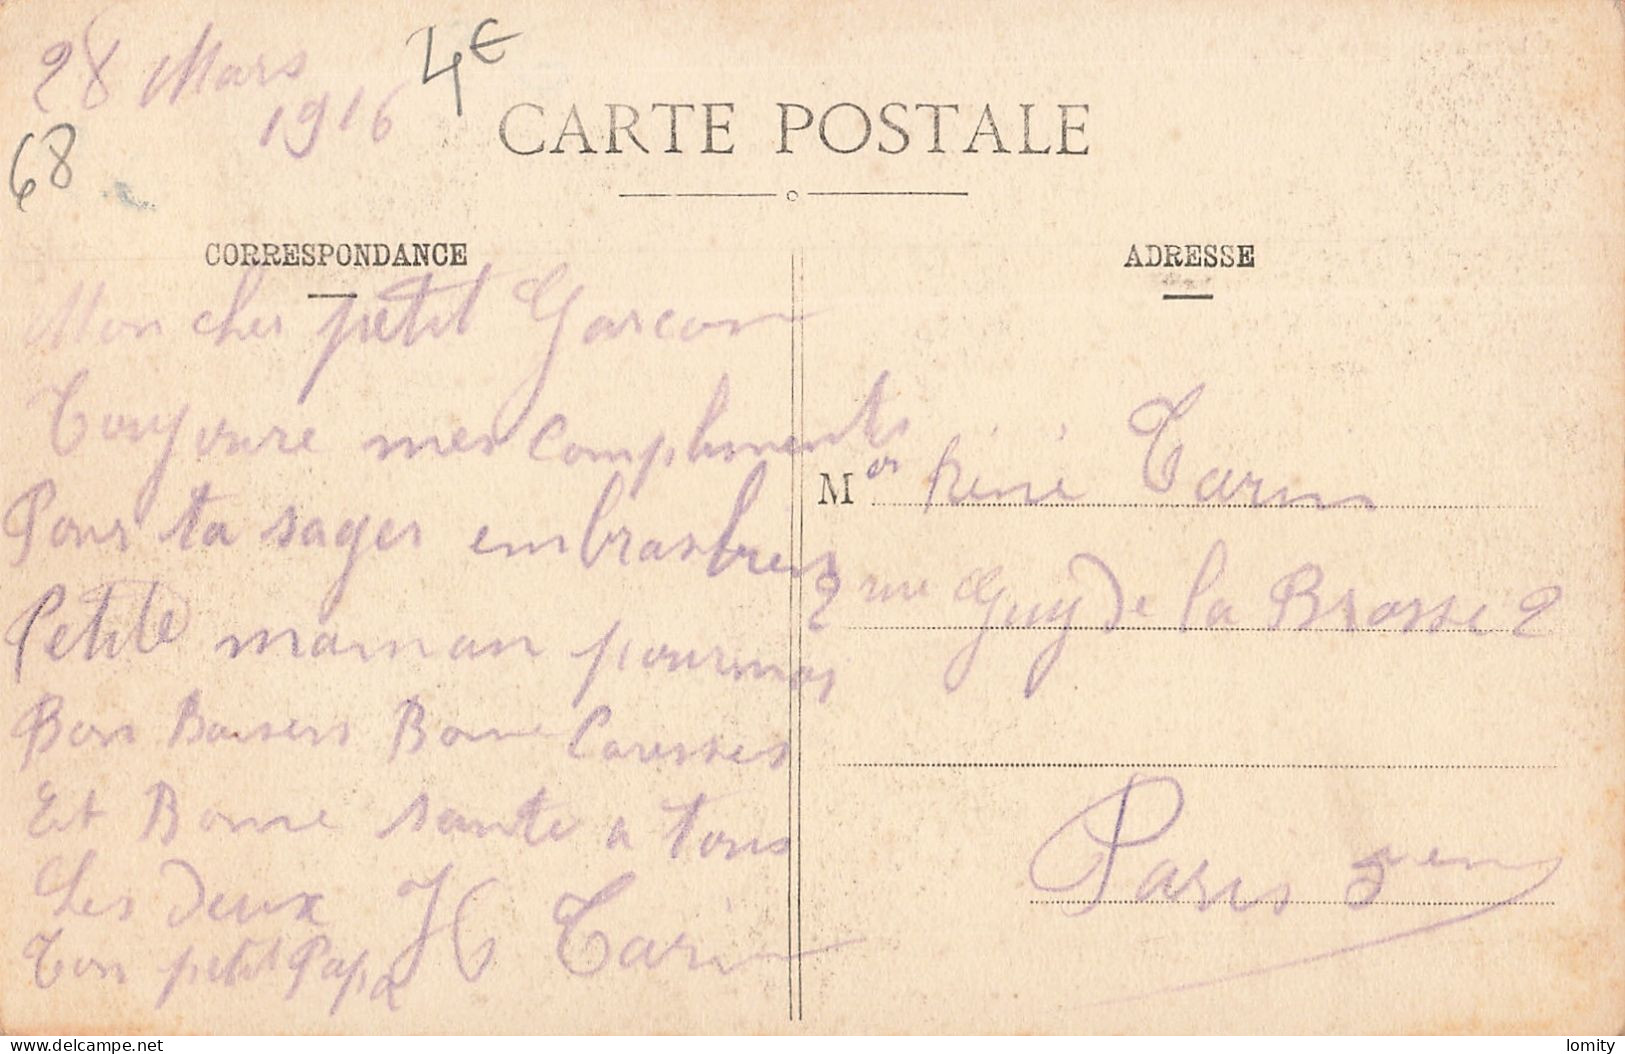 28 Mars
1916
4€
68
CARTE POSTALE
CORRESPONDANCE
Mon cher petit Garcon
Toujoure mes compliments
Pour ta sages embrasbien
Petite maman pourmoi
Bons Baisers Bonne Caresses
Et Bonne sante a tous
Les deux
Ton petit Papa Tarin
ADRESSE
M René Tarin
2 rue Guy de la Brosse 2
Paris 5em
delcampe.net
lomity